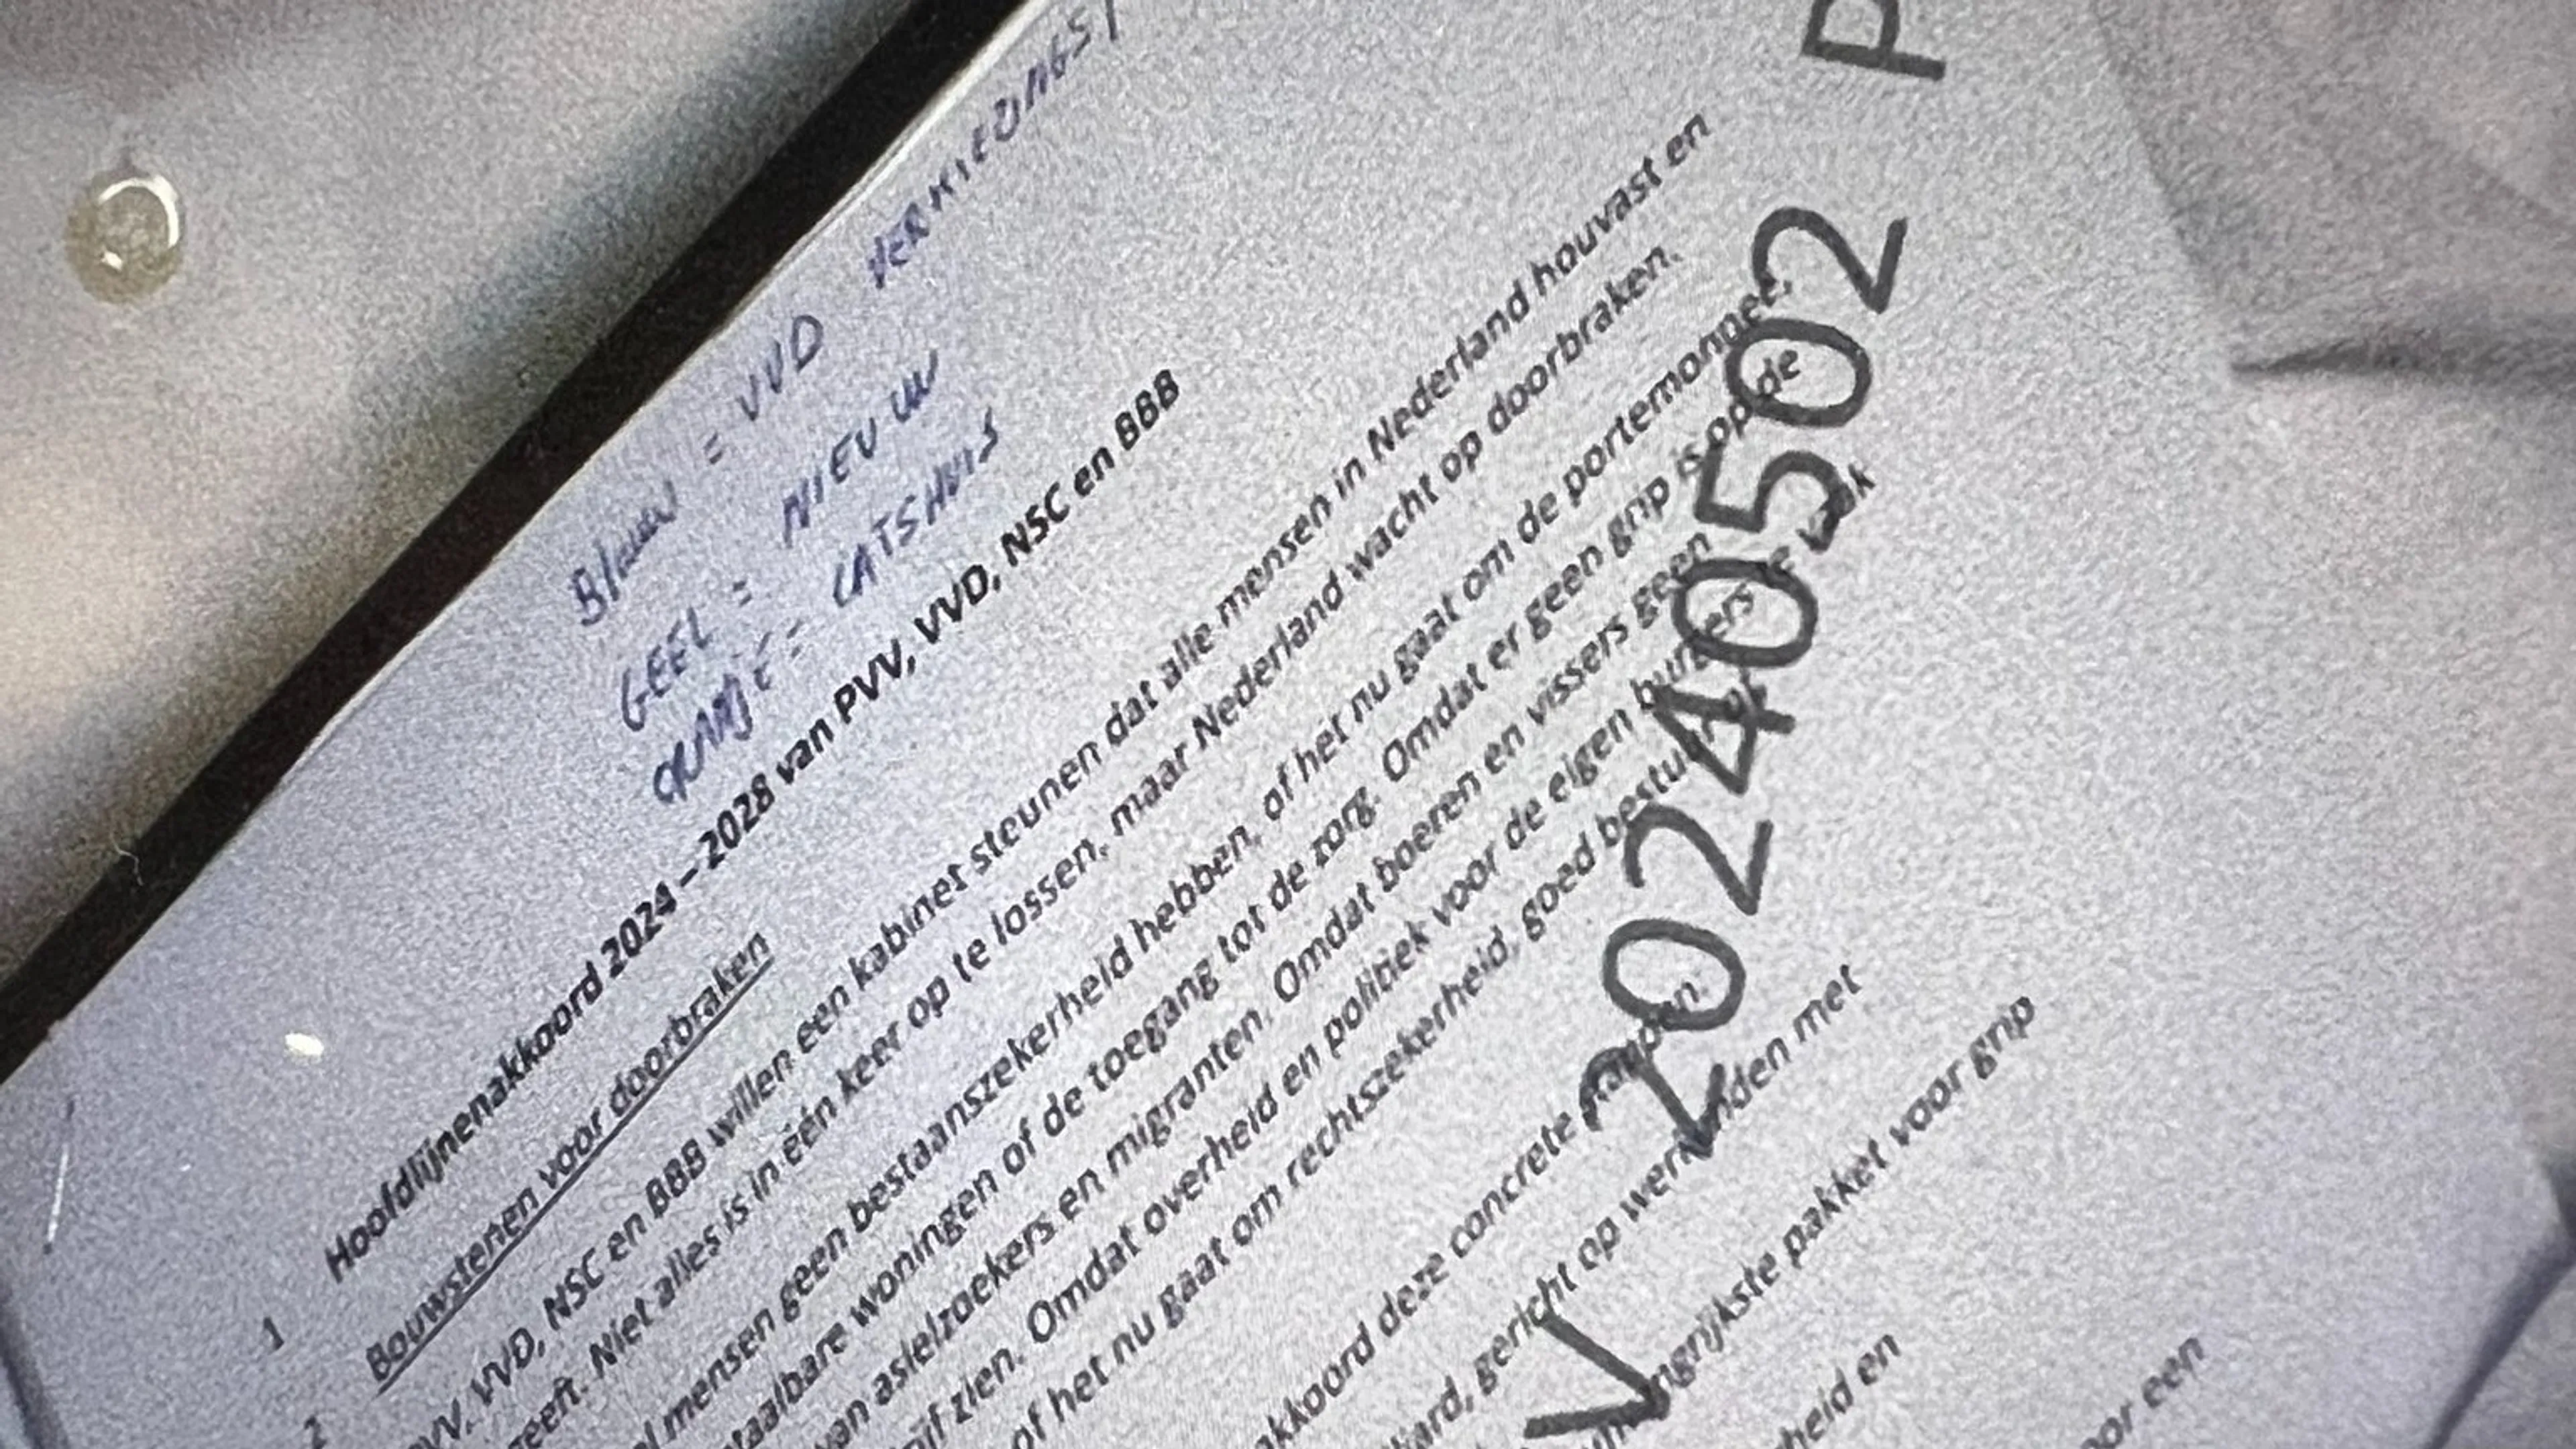 Blauw = VVD VERKIEZINGS
GEEL = NIEUW
ORANJE = CATSHUIS
1 Hoofdlijnenakkoord 2024 – 2028 van PVV, VVD, NSC en BBB
2 Bouwstenen voor doorbraken
VVD, NSC en BBB willen een kabinet steunen dat alle mensen in Nederland houvast en
geeft. Niet alles is in één keer op te lossen, maar Nederland wacht op doorbraken.
mensen geen bestaanszekerheid hebben, of het nu gaat om de portemonnee,
woningen of de toegang tot de zorg. Omdat er geen grip is op de
van asielzoekers en migranten. Omdat boeren en vissers geen
zien. Omdat overheid en politiek voor de eigen burgers te vaak
of het nu gaat om rechtszekerheid, goed bestuur of
akkoord deze concrete plannen.
gericht op werkenden met
pakket voor grip
heid en
voor een
V 20240502 P